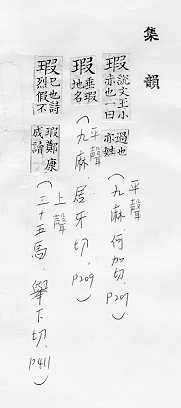 集韻
瑕 說文玉小赤也一曰過也亦姓 平聲(九麻.何加切.P207)
瑕 垂瑕地名 平聲(九麻.居牙切.P209)
瑕 已也詩烈假不瑕鄭康成讀 上聲(三十五馬.舉下切.P411)